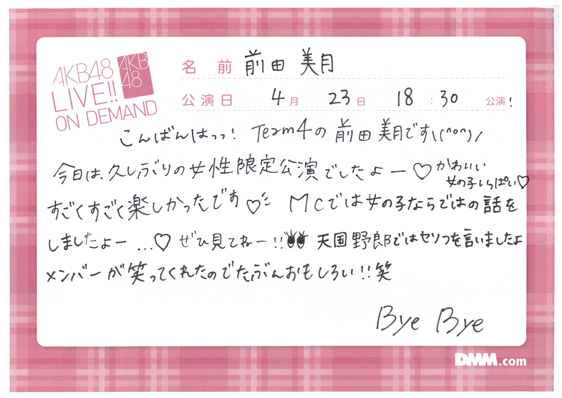 AKB48
LIVE!!
ON DEMAND
AKB
48
名 前 前田 美月
公演日 4月 23日 18:30 公演!
こんばんはっっ! Team4の前田美月です\(^o^)/
今日は、久しぶりの女性限定公演でしたよー♡ かわいい
女の子いっぱい♡
すごくすごく楽しかったです♡ MCでは女の子ならではの話を
しましたよー...♡ ぜひ見てねー!! 天国野郎Bではセリフを言いましたよ
メンバーが笑ってくれたのでたぶんおもしろい!!笑
Bye Bye
DMM.com